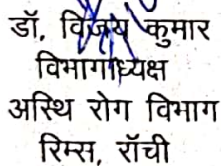 डॉ. विजय कुमार
विभागाध्यक्ष
अस्थि रोग विभाग
रिम्स, रॉची